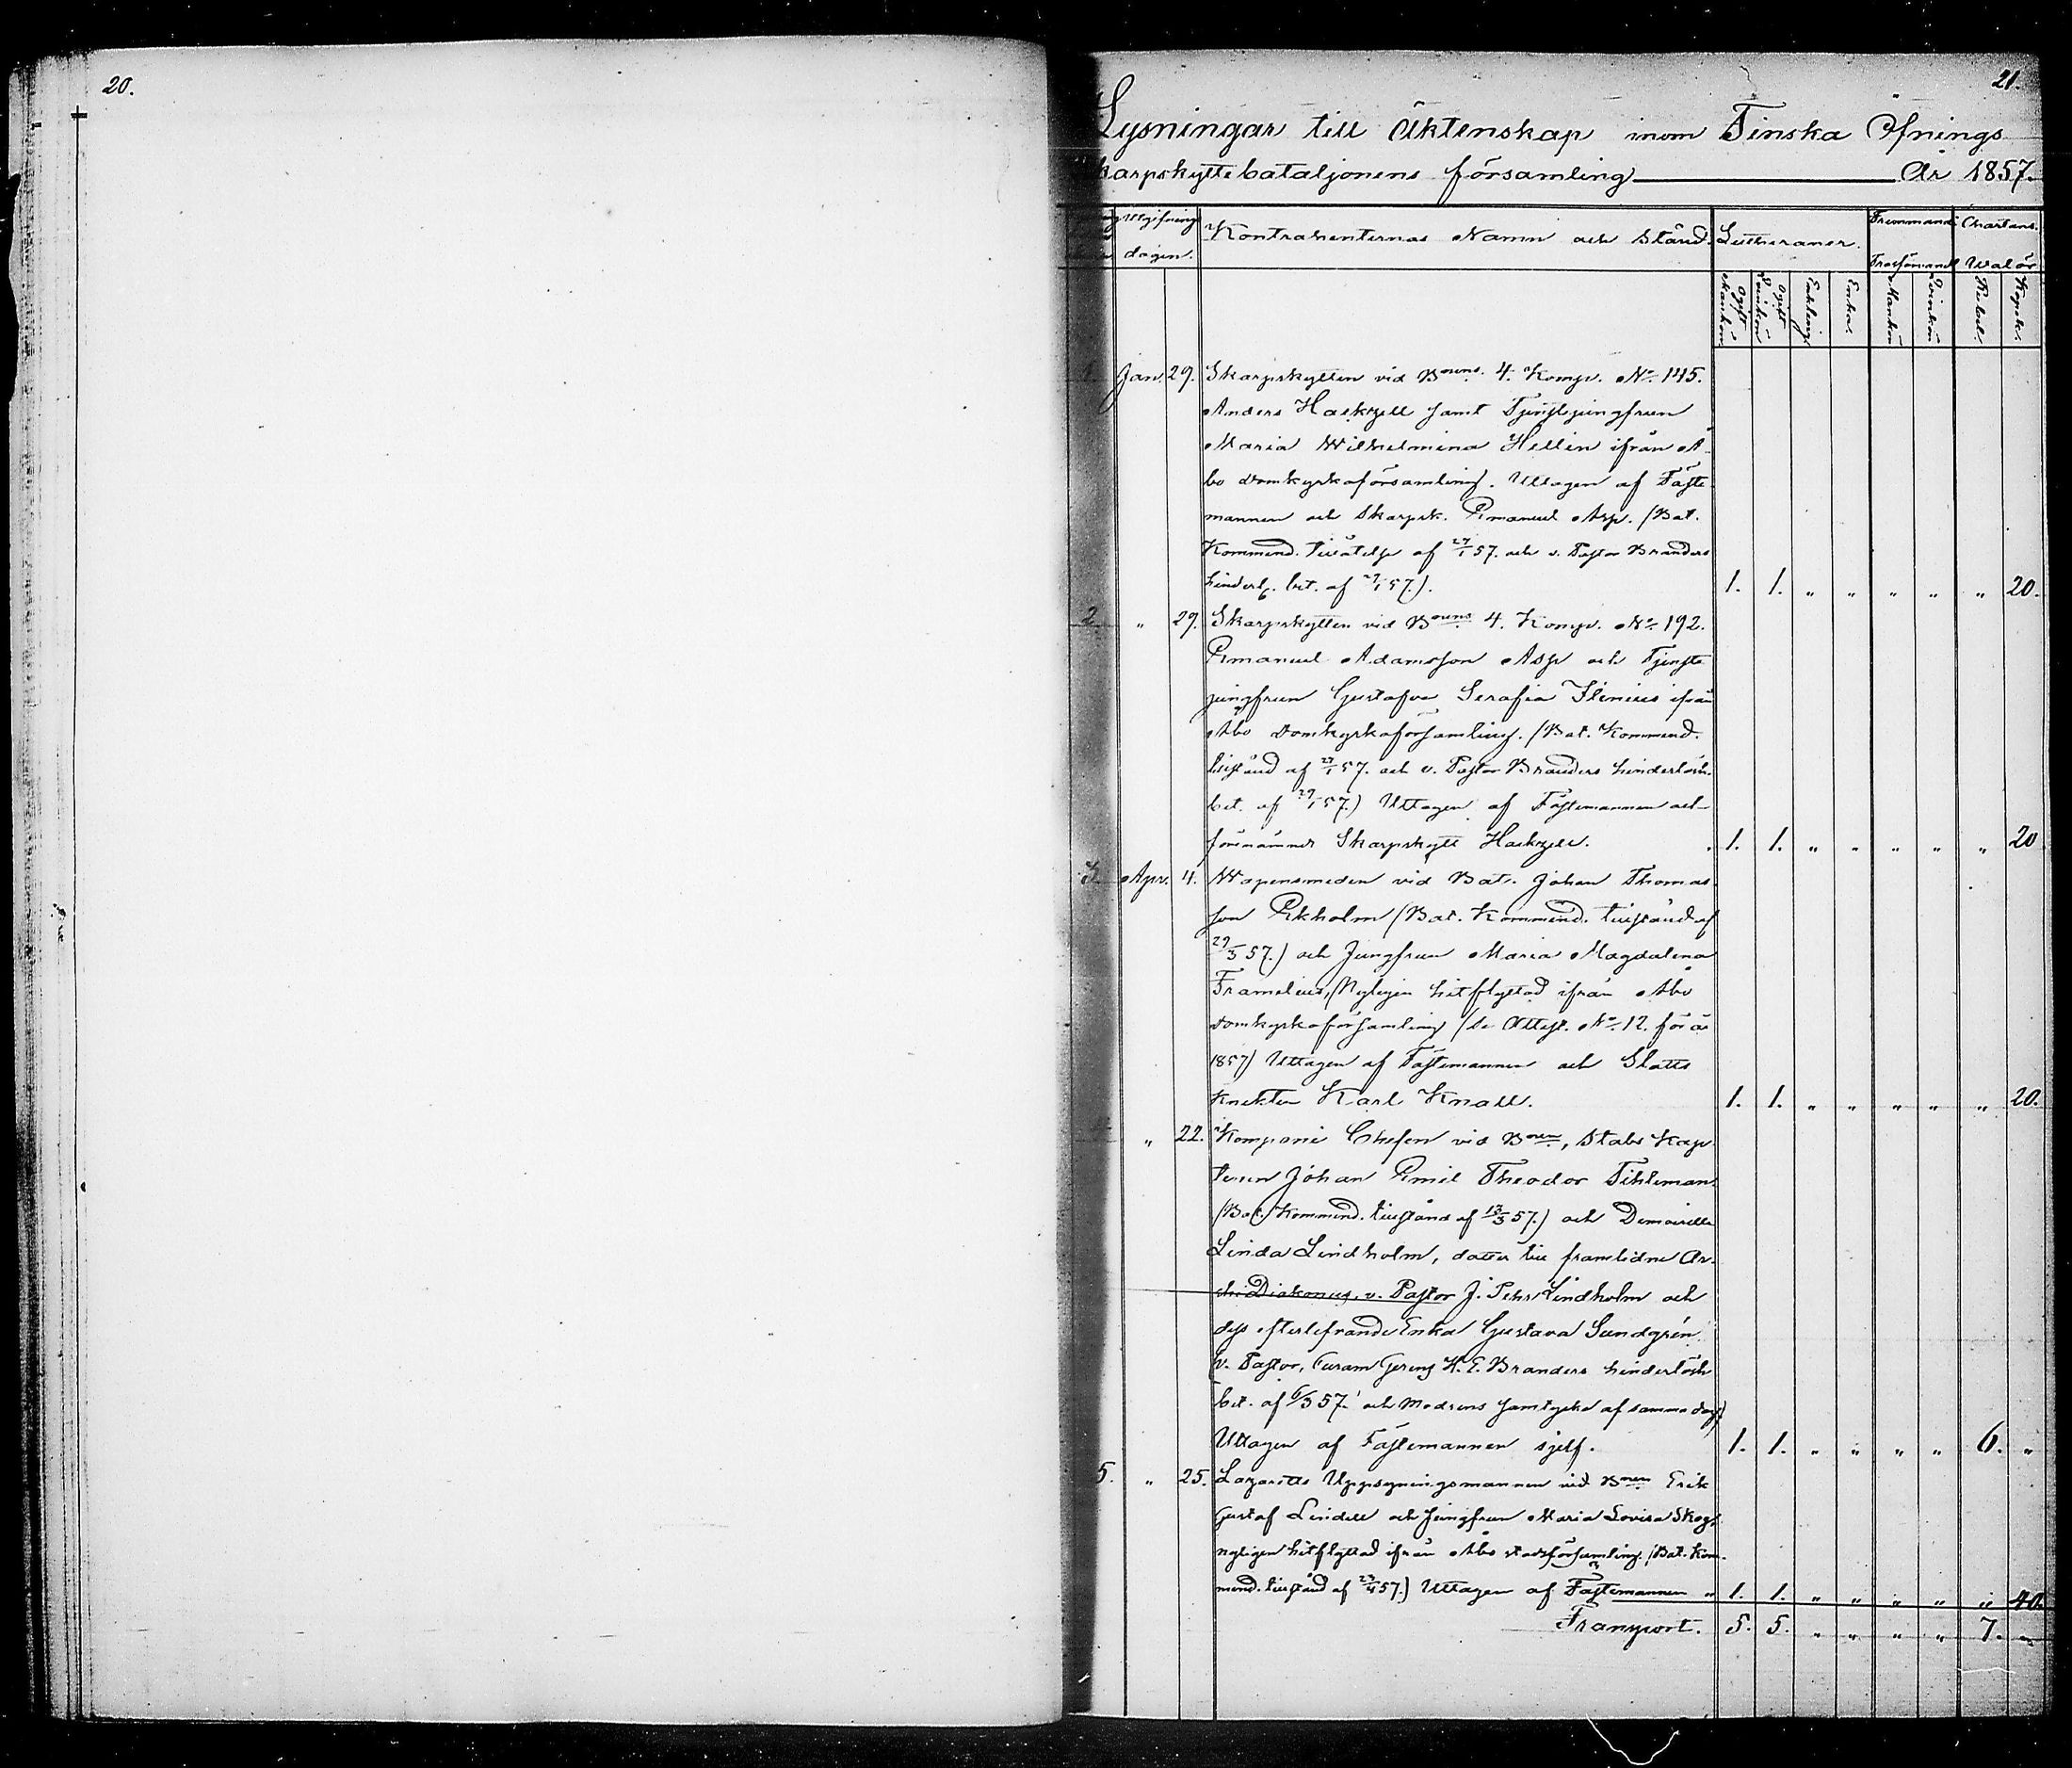 20.
21.
Lysningar till Äktenskap inom Finska Öfnings
karpskyttebataljonens församling År 1857.
Utgifnings dagen.
Kontrahenternas Namn och Stånd.
Lutheraner.
Främmande Trosförvandt
Chartans. Walör
Ogift Mankön
Ogift Qvinkön
Enkling
Enka.
Mankön
Qvinkön
Rubel.
Kopek.
1 Jan. 29. Skarpskytten vid Bouns. 4. Komp. No. 145.
Anders Hackzell samt Tjenstejungfrun
Maria Wilhelmina Hellén ifrån Å-
bo domkyrkoförsamling. Uttagen af Fäste
mannen och Skarpsk. Emanuel Asp. (Bat.
Kommend. tillåtelse af 27/1 57. och v. Pastor Branders
hinderl. bet. af 29/1 57.). 1. 1. " " " " " 20.
2 " 29. Skarpskytten vid Bouns 4. Komp. No. 192.
Emanuel Adamsson Asp och Tjenste
jungfrun Gustafva Serafia Ilenius ifrån
Åbo domkyrkoförsamling. (Bat. Kommend.
tillstånd af 27/1 57. och v. Pastor Branders hinderlösh.
bet. af 29/1 57.) Uttagen af Fästemannen och
förenämnd Skarpskytt Hackzell. 1. 1. " " " " " 20
3. Apr. 4. Wapensmeden vid Bat. Johan Thomas
son Ekholm (Bat. Kommend. tillstånd af
29/3 57.) och Jungfrun Maria Magdalena
Framelius, Nyligen hitflyttad ifrån Åbo
domkyrkoförsamling (se Attest. No. 12. för år
1857) Uttagen af Fästemannen och Slotts
Knekten Karl Knall. 1. 1. " " " " " 20.
4 " 22. Kompani Chefen vid Bonen, Stabs Kap
tenen Johan Emil Theodor Tihleman.
(Bat. Kommend. tillstånd af 13/3 57.) och Demoiselle
Linda Lindholm, dotter till framlidne Ar-
che Diakonus, v. Pastor J. Pehr Lindholm och
dess efterlefvande Enka Gustava Sundgrén.
(v. Pastor, Curam Gerens K. E. Branders hinderlösh
bet. af 6/3 57. och Modrens samtycke af samma dag)
Uttagen af Fästemannen sjelf. 1. 1. " " " " 6. "
5. " 25. Lazaretts Uppsyningsmannen vid Bonen Erik
Gustaf Lindell och Jungfrun Maria Lovisa Skog,
nyligen hitflyttad ifrån Åbo stadsförsamling. (Bat. Kom-
mend. tillstånd af 23/4 57.) Uttagen af Fästemannen " 1. 1. " " " " " 40.
Transport. 5. 5. " " " " 7. "